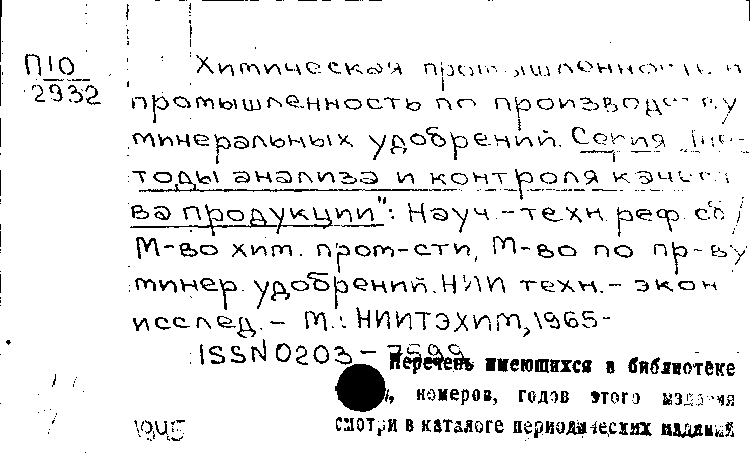 П10
2932
Химическая промышленность и
промышленность по производству
минеральных удобрений. Серия "Ме-
тоды анализа и контроля качест-
ва продукции": Науч.-техн. реф. сб /
М-во хим. пром-сти, М-во по пр-ву
минер. удобрений. НИИ техн.-экон
исслед. - М.: НИИТЭХИМ, 1965-
ISSN 0203-7599
Перечень имеющихся в библиотеке
номеров, годов этого издания
смотри в каталоге периодических изданий
1945